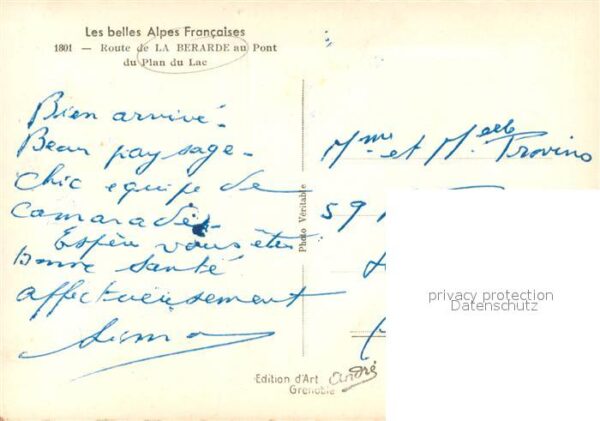 Les belles Alpes Françaises
1801 — Route de LA BERARDE au Pont
du Plan du Lac
Bien arrivé.
Beau paysage -
Chic equipe de
camarades.
Espère vous êtes
bonne santé
affectueusement
Mme et Melle Trovino
59
Photo Véritable
privacy protection
Datenschutz
Edition d'Art André
Grenoble